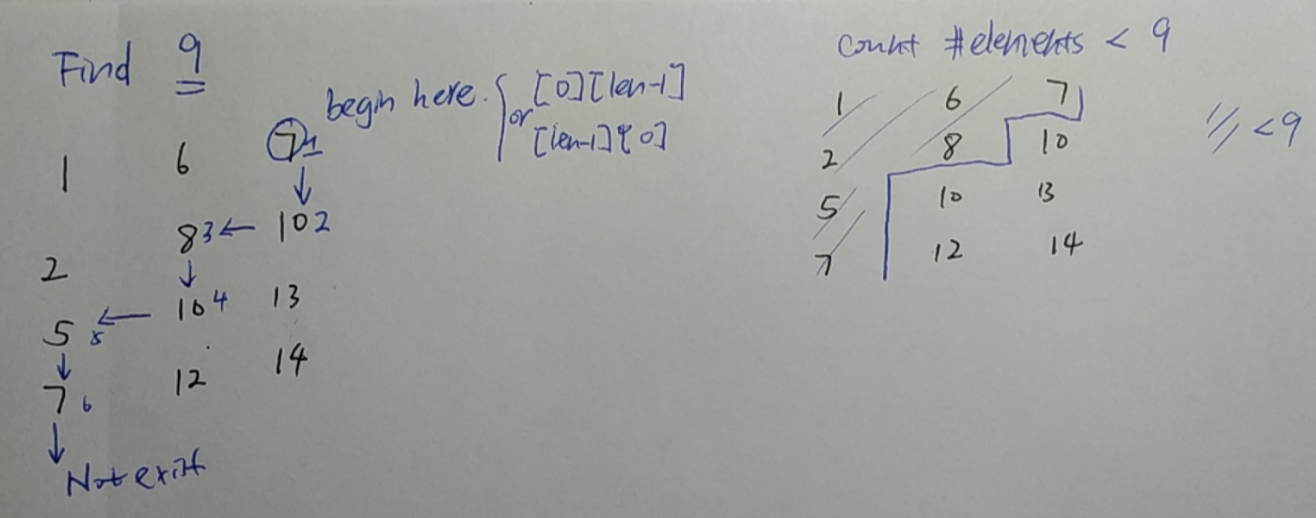 Find 9
begin here. or [0][len-1]
[len-1][0]
1 6 7 1
↓
8 3 ← 10 2
2 ↓
5 5 ← 10 4 13
↓
7 6 12 14
↓
Not exist
Count #elements < 9
1 6 7
2 8 10
5 10 13
7 12 14
// < 9